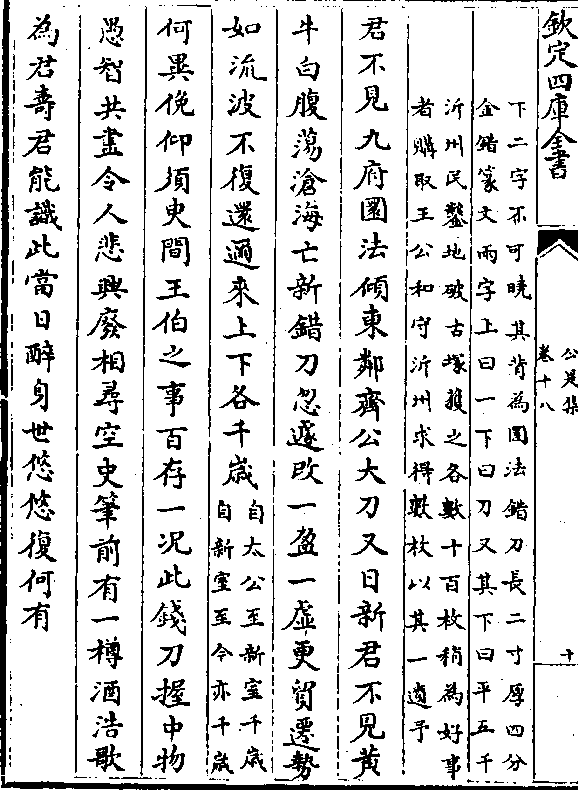 欽定四庫全書
公是集
卷十八
十
下二字不可曉其背為圜法錯刀長二寸厚四分
金錯篆文兩字上曰一下曰刀又其下曰平五千
沂州民鑿地破古塚獲之各數十百枚稍為好事
者購取王公和守沂州求得數枚以其一遺予
君不見九府圜法傾東鄰齊公大刀又日新君不見黃
牛白腹蕩滄海亡新錯刀忽遽改一盈一虛更貿遷勢
如流波不復還逈來上下各千歲自太公至新室千歲自新室至今亦千歲
何異俛仰須臾間王伯之事百存一况此錢刀握中物
愚智共盡令人悲興廢相尋空史筆前有一樽酒浩歌
為君壽君能識此當日醉身世悠悠復何有